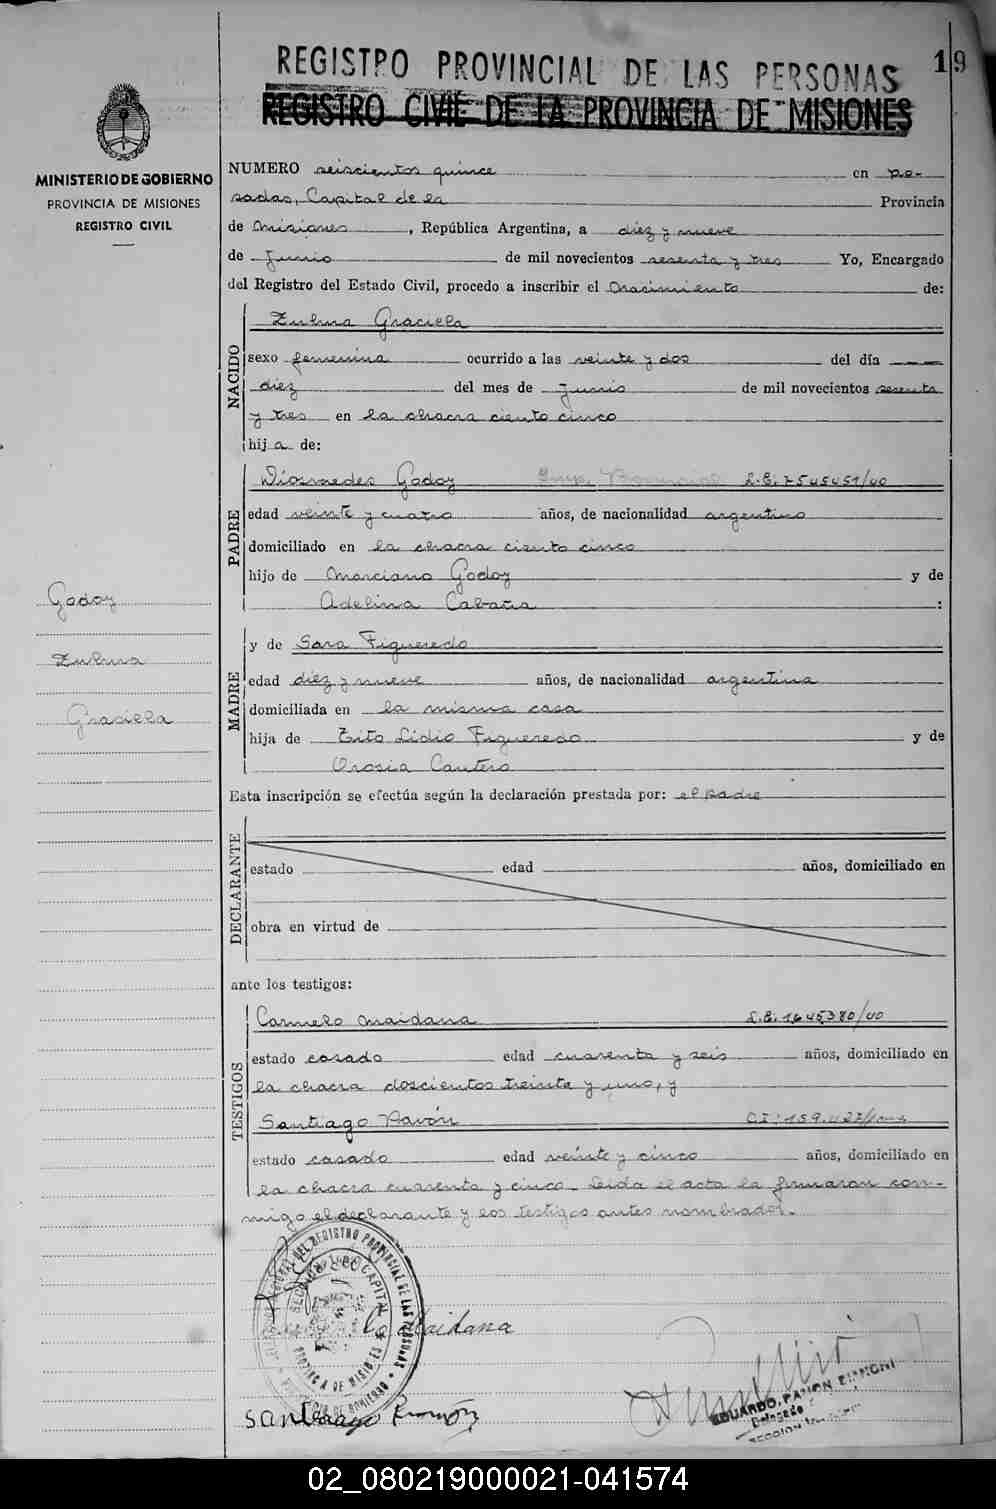 19
REGISTRO PROVINCIAL DE LAS PERSONAS
REGISTRO CIVIL DE LA PROVINCIA DE MISIONES
MINISTERIO DE GOBIERNO
PROVINCIA DE MISIONES
REGISTRO CIVIL
NUMERO seiscientos quince en Po-
sadas, Capital de la Provincia
de Misiones, República Argentina, a diez y nueve
de Junio de mil novecientos sesenta y tres Yo, Encargado
del Registro del Estado Civil, procedo a inscribir el Nacimiento de:
NACIDO
Zulma Graciela
sexo femenina ocurrido a las veinte y dos del día
diez del mes de Junio de mil novecientos sesenta
y tres en la chacra ciento cinco
hija de:
PADRE
Diosmedes Godoy L.E. 7545451/40
edad veinte y cuatro años, de nacionalidad argentino
domiciliado en la chacra ciento cinco
hijo de Marciano Godoy y de
Adelina Cabaña :
Godoy
Zulma
Graciela
MADRE
y de Sara Figueredo
edad diez y nueve años, de nacionalidad argentina
domiciliada en la misma casa
hija de Tito Lidio Figueredo y de
Orosia Cantero
Esta inscripción se efectúa según la declaración prestada por: el padre
DECLARANTE
estado edad años, domiciliado en
obra en virtud de
ante los testigos:
TESTIGOS
Carmelo Maidana L.E. 1645380/40
estado casado edad cuarenta y seis años, domiciliado en
la chacra doscientos treinta y uno, y
Santiago Pavón C.I: 159.427
estado casado edad veinte y cinco años, domiciliado en
la chacra cuarenta y cinco. Leida el acta la firmaran con-
migo el declarante y los testigos antes nombrados.
REGISTRO PROVINCIAL DE LAS PERSONAS
CAPITAL
PROVINCIA DE MISIONES
C. Maidana
EDUARDO RAMON
Delegado
SECCION
02_080219000021-041574